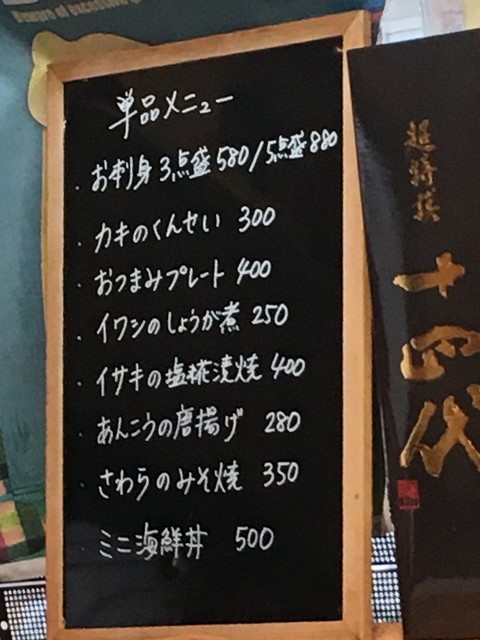 Beware of excessive
単品メニュー
・お刺身3点盛580/5点盛880
・カキのくんせい 300
・おつまみプレート 400
・イワシのしょうが煮 250
・イサキの塩糀漬焼 400
・あんこうの唐揚げ 280
・さわらのみそ焼 350
・ミニ海鮮丼 500
超特撰
十四代